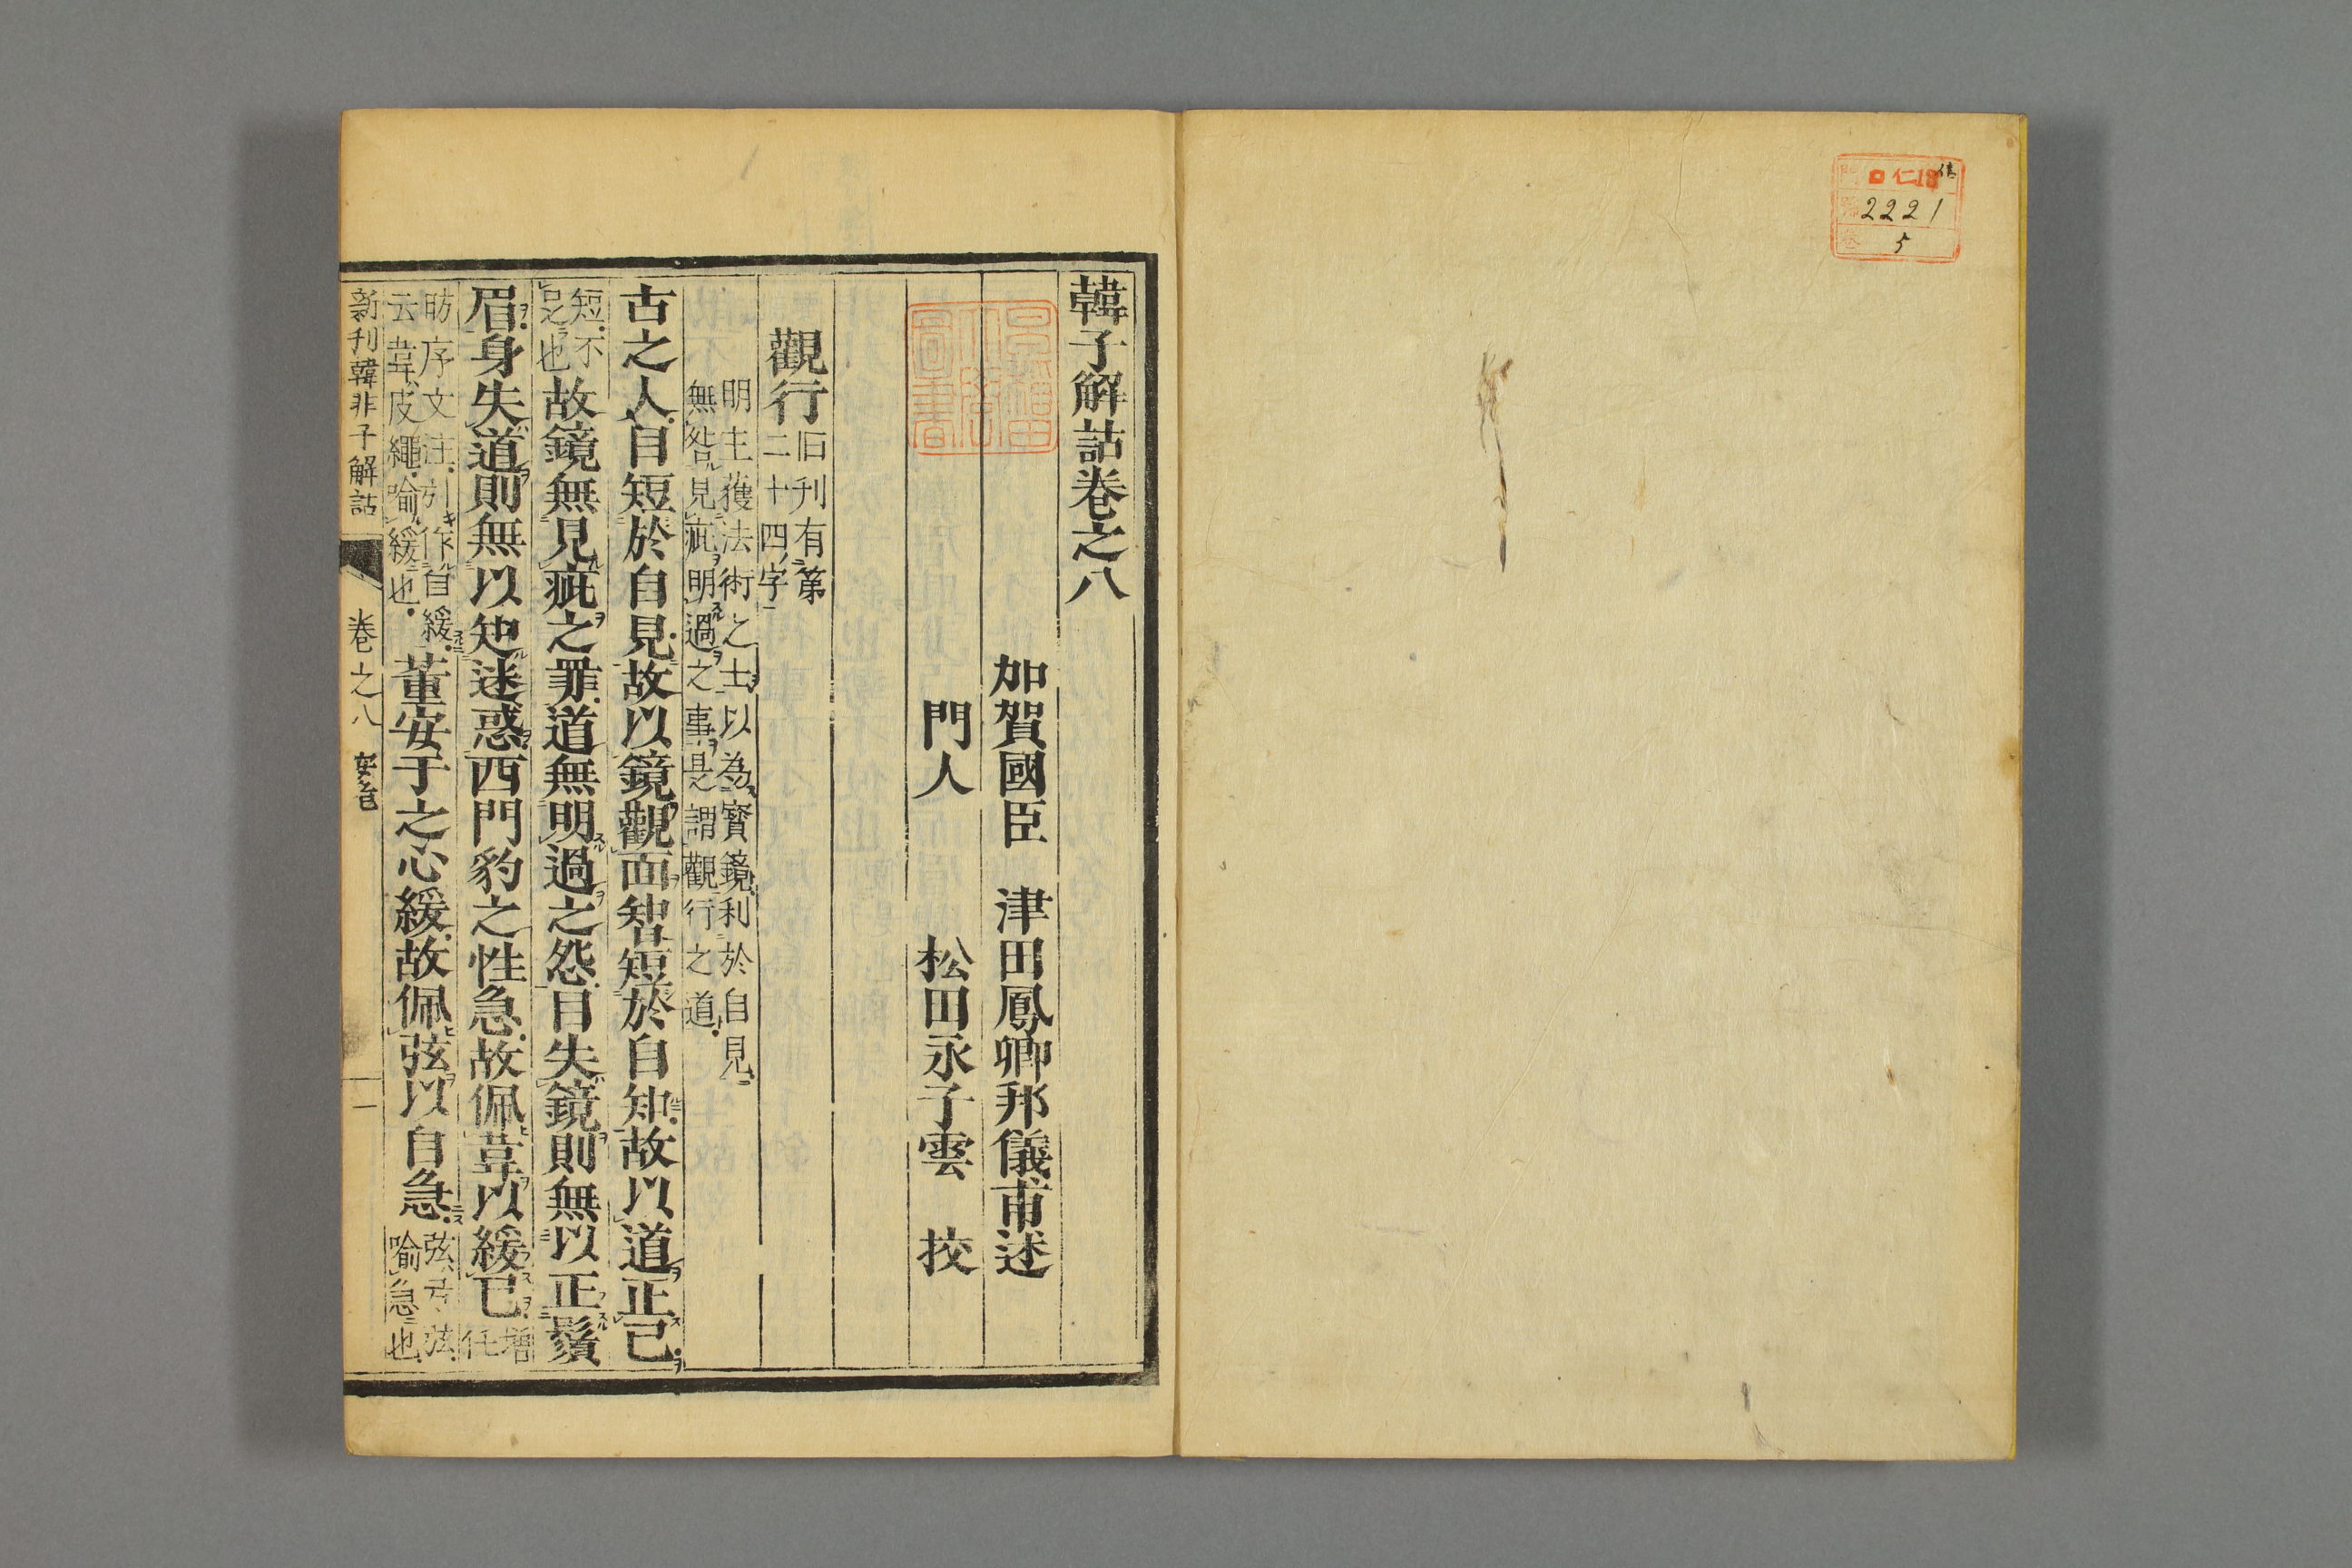 2221
5
韓子解詁卷之八
加賀國臣 津田鳳卿邦儀甫述
門人 松田永子雲 挍
觀行 旧刊有第二十四字
明主獲法術之士以為寳鏡利於自見
無咎見疵明過之事是謂觀行之道
古之人目短於自見故以鏡觀面智短於自知故以道正己
短不足之也故鏡無見疵之罪道無明過之怨目失鏡則無以正鬚
眉身失道則無以知迷惑西門豹之性急故佩韋以緩已增任
昉序文注引作自緩云韋皮繩喻緩也董安于之心緩故佩弦以自急弦弓弦喻急也
新刊韓非子解詁 卷之八 一